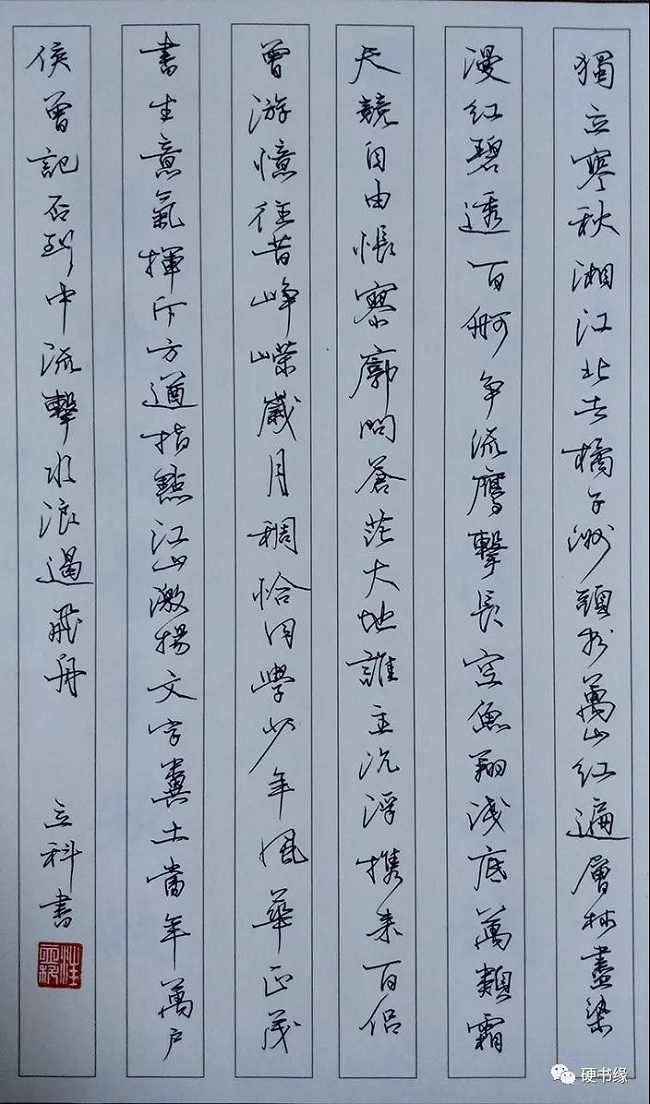 獨立寒秋湘江北去橘子洲頭看萬山紅遍層林盡染
漫紅碧透百舸争流鷹擊長空魚翔淺底萬類霜
天競自由悵寥廓問蒼茫大地誰主沉浮携來百侣
曾游憶往昔崢嶸歲月稠恰同學少年風華正茂
書生意氣揮斥方遒指點江山激揚文字糞土當年萬户
侯曾記否到中流擊水浪遏飛舟
立科書
硬书缘